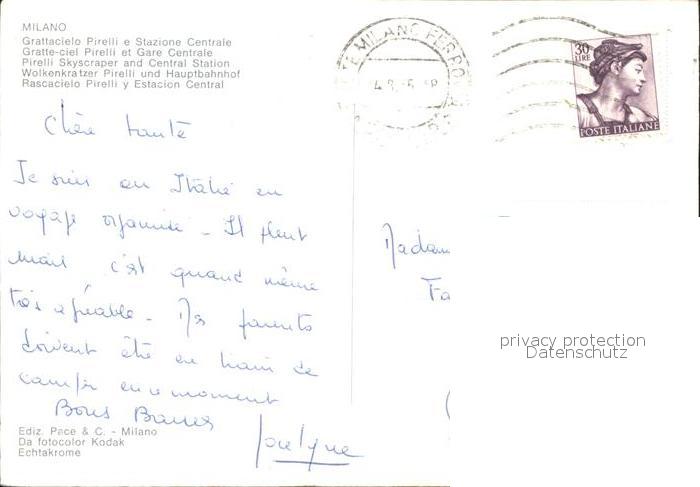 MILANO
Grattacielo Pirelli e Stazione Centrale
Gratte-ciel Pirelli et Gare Centrale
Pirelli Skyscraper and Central Station
Wolkenkratzer Pirelli und Hauptbahnhof
Rascacielo Pirelli y Estacion Central
MILANO FERRO
30
LIRE
POSTE ITALIANE
Chère tante
Je suis en Italie en
voyage organisé - Il pleut
mais c'est quand même
très agréable - Mes parents
doivent être en train de
camper en ce moment
Bons Baisers
Jocelyne
Madam
Fa
privacy protection
Datenschutz
Ediz. Pace & C. - Milano
Da fotocolor Kodak
Echtakrome